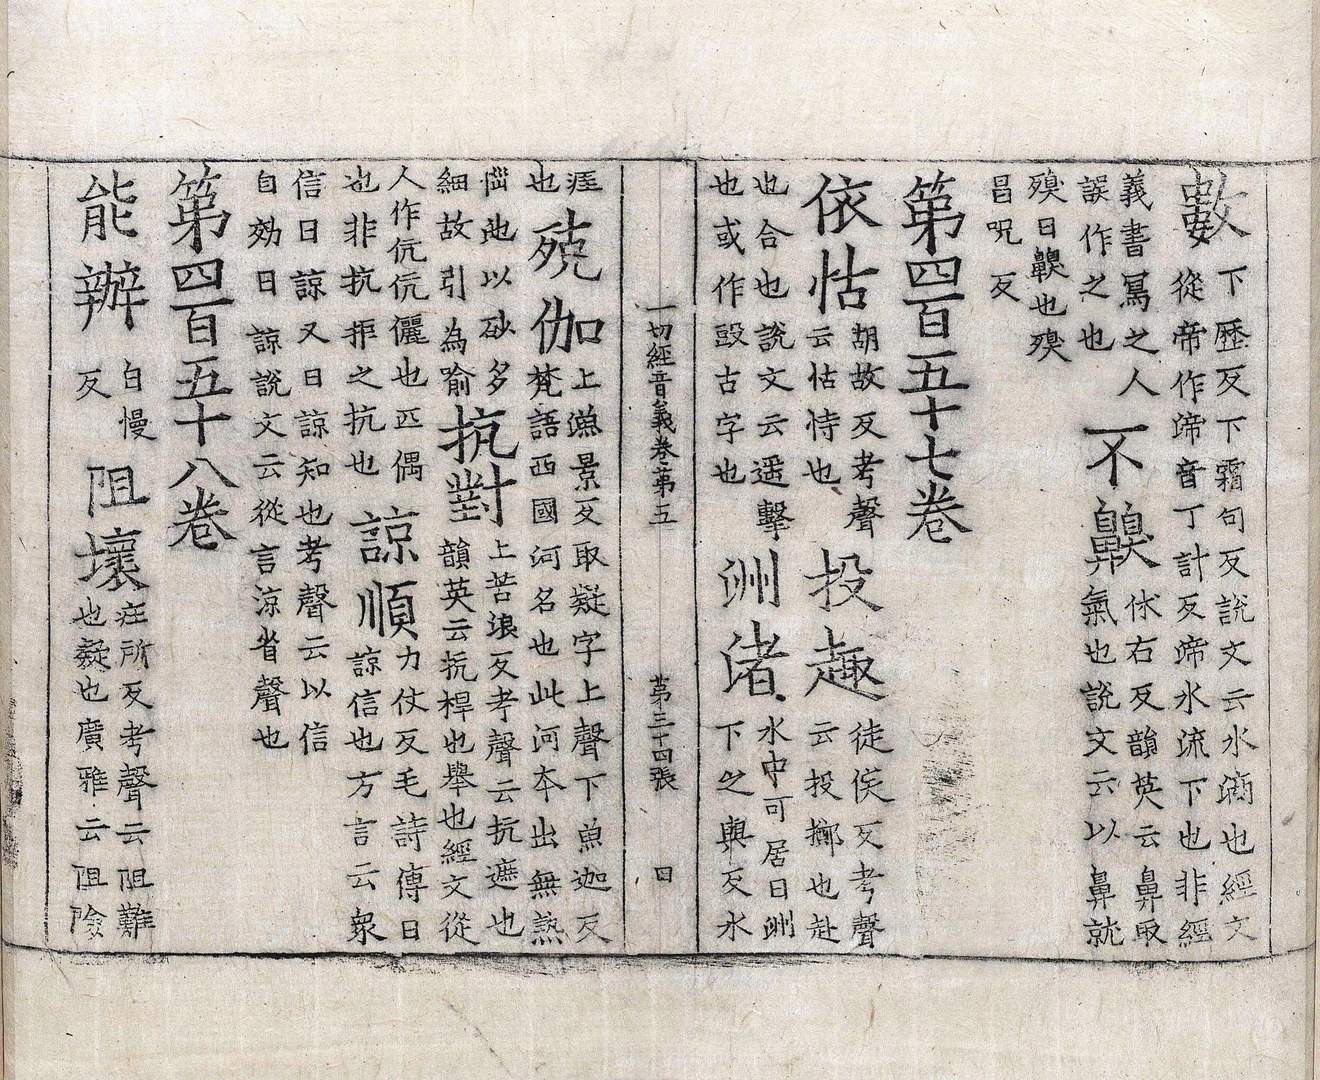 數
下歷反下霜句反說文云水滴也經文
從帝作渧音丁計反渧水流下也非經
義書寫之人
誤作之也
不齅
休右反韻英云鼻取
氣也說文云以鼻就
殠曰齅也殠
昌呪反
第四百五十七卷
依怙
胡故反考聲
云怙恃也
投趣
徒侯反考聲
云投擲也赴
也合也說文云遥擊
也或作古字也
洲渚
水中可居曰洲
下之與反水
一切經音義卷第五 第三十四張 四
涯
也
殑伽
上漁景反取凝字上聲下魚迦反
梵語西國河名也此河本出無熱
惱池以砂多
細故引為喻
抗對
上苦浪反考聲云抗遮也
韻英云抗捍也舉也經文從
人作伉伉儷也匹偶
也非抗拒之抗也
諒順
力仗反毛詩傳曰
諒信也方言云衆
信曰諒又曰諒知也考聲云以信
自効曰諒說文云從言涼省聲也
第四百五十八卷
能辦
白慢
反
阻壞
疰所反考聲云阻難
也疑也廣雅云阻險